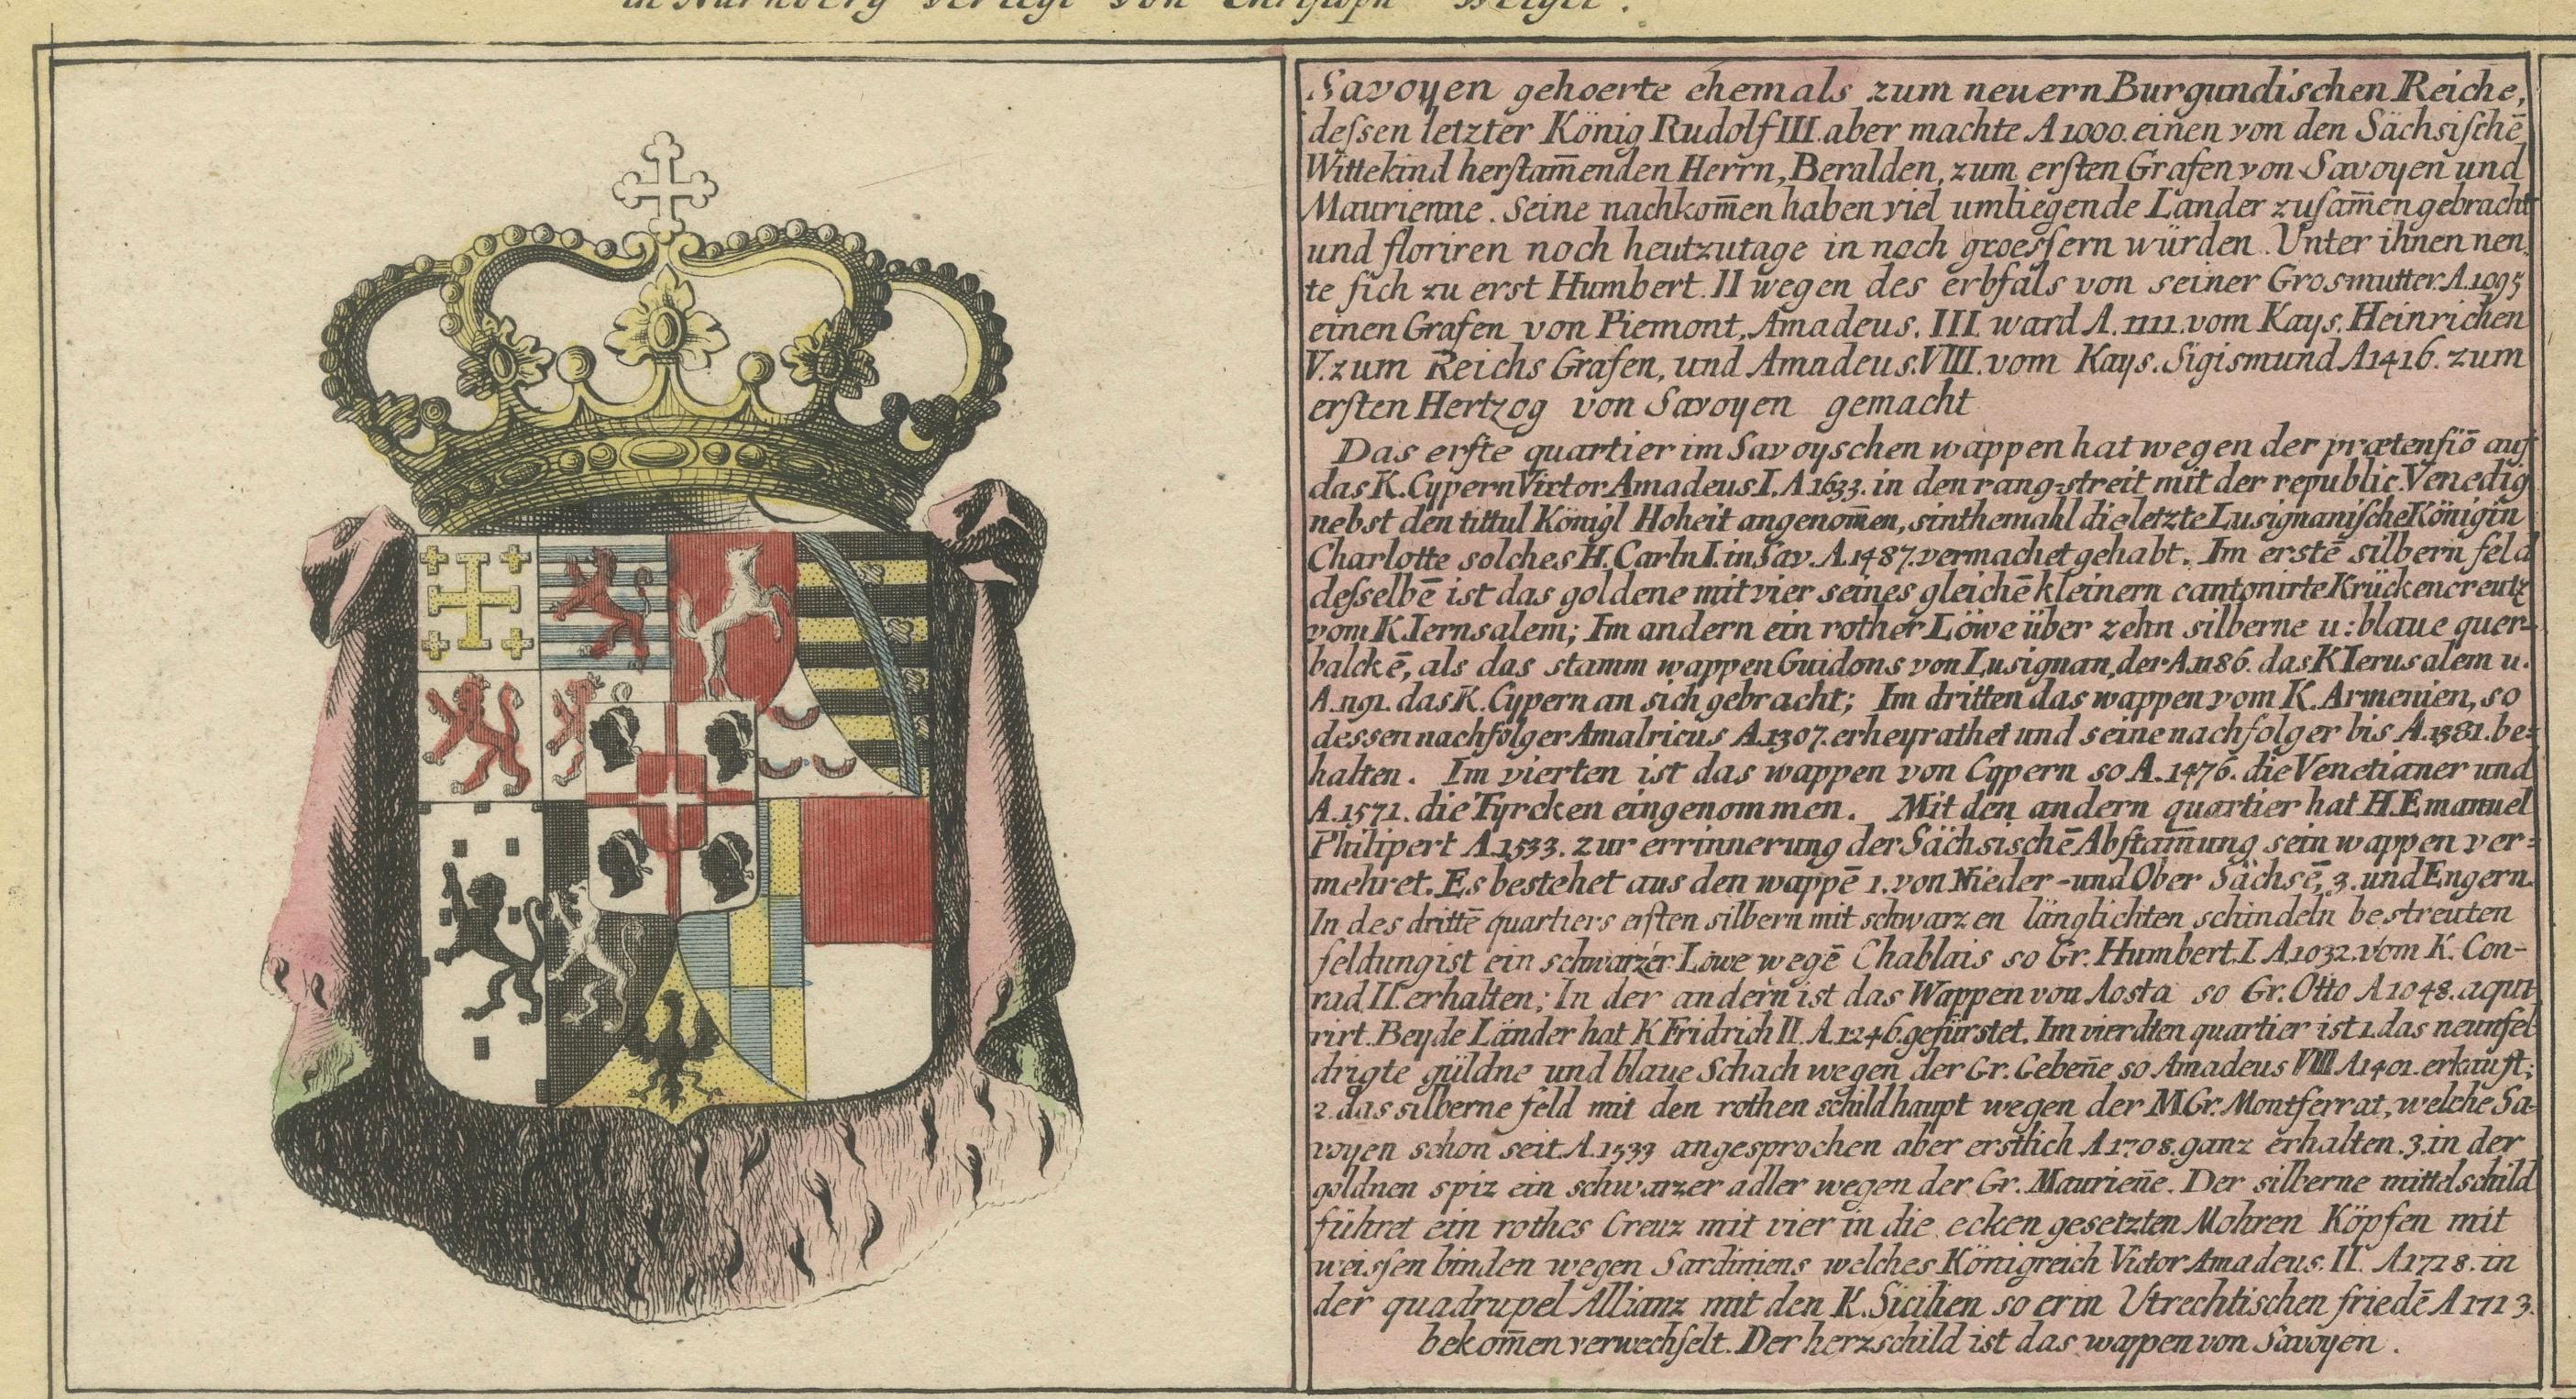 in Nürnberg verlegt von Christoph Weigel.
Savoyen gehoerte ehemals zum neuern Burgundischen Reiche,
deſsen letzter König Rudolf III. aber machte A 1000. einen von den Sächsiſchē
Wittekind herſtam̄enden Herrn, Beralden, zum erſten Grafen von Savoyen und
Maurienne. Seine nachkom̄en haben viel umliegende Länder zuſam̄en gebracht
und floriren noch heutzutage in noch groeſsern würden. Unter ihnen nen,
te ſich zu erst Humbert. II wegen des erbfals von seiner Grosmutter. A. 1095
einen Grafen von Piemont, Amadeus. III. ward A. 1111. vom Kays. Heinrichen
V. zum Reichs Grafen, und Amadeus. VIII. vom Kays. Sigismund A 1416. zum
erſten Hertzog von Savoyen gemacht
Das erſte quartier im Savoyschen wappen hat wegen der prætenſiō auf
das K. Cypern Victor Amadeus I. A. 1633. in den rang-streit mit der republic Venedig
nebst den tittul Königl Hoheit angenom̄en, sinthemahl die letzte Lusignaniſche Königin
Charlotte solches H. Carln I. in Sav. A. 1487. vermachet gehabt. Im erstē silbern feld
deſselbē ist das goldene mit vier seines gleichē kleinern cantonirte Krückencreutz
vom K. Iernsalem; Im andern ein rother Löwe über zehn silberne u: blaue quer-
balckē, als das stamm wappen Guidons von Lusignan, der A. 1186. das K Ierusalem u.
A. 1191. das K. Cypern an sich gebracht; Im dritten das wappen vom K. Armenien, so
dessen nachfolger Amalricus A. 1307. erheyrathet und seine nachfolger bis A. 1381. be-
halten. Im vierten ist das wappen von Cypern so A. 1476. die Venetianer und
A. 1571. die Tyrcken eingenommen. Mit den andern quartier hat H. Emanuel
Philipert A. 1533. zur errinnerung der Sächsischē Abſtam̄ung sein wappen ver-
mehret. Es bestehet aus den wappē 1. von Nieder-und Ober Sachsē, 3. und Engern.
In des drittē quartiers erſten silbern mit schwarzen länglichten schindeln bestreuten
feldung ist ein schwarzer Löwe wegē Chablais so Gr. Humbert. I A. 1032. vom K. Con-
rad II. erhalten; In der andern ist das Wappen von Aosta so Gr. Otto A 1048. aqui-
rirt. Beyde Länder hat K Fridrich II. A. 1246. gefürstet. Im vierdten quartier ist 1. das neunfel
drigte güldne und blaue Schach wegen der Gr. Geben̄e so Amadeus VIII A 1401. erkauft;
2. das silberne feld mit den rothen schildhaupt wegen der M. Gr. Montferrat, welche Sa-
voyen schon seit A. 1533 angesprochen aber erstlich A 1708. ganz erhalten. 3. in der
goldnen spiz ein schwarzer adler wegen der Gr. Maurien̄e. Der silberne mittelschild
führet ein rothes Creuz mit vier in die ecken gesetzten Mohren Köpfen mit
weiſsen binden wegen Sardiniens welches Königreich Victor Amadeus. II. A 1718. in
der quadrupel Allianz mit den K. Sicilien so er in Utrechtischen friedē A 1713.
bekom̄en verwechſelt. Der herzschild ist das wappen von Savoyen.